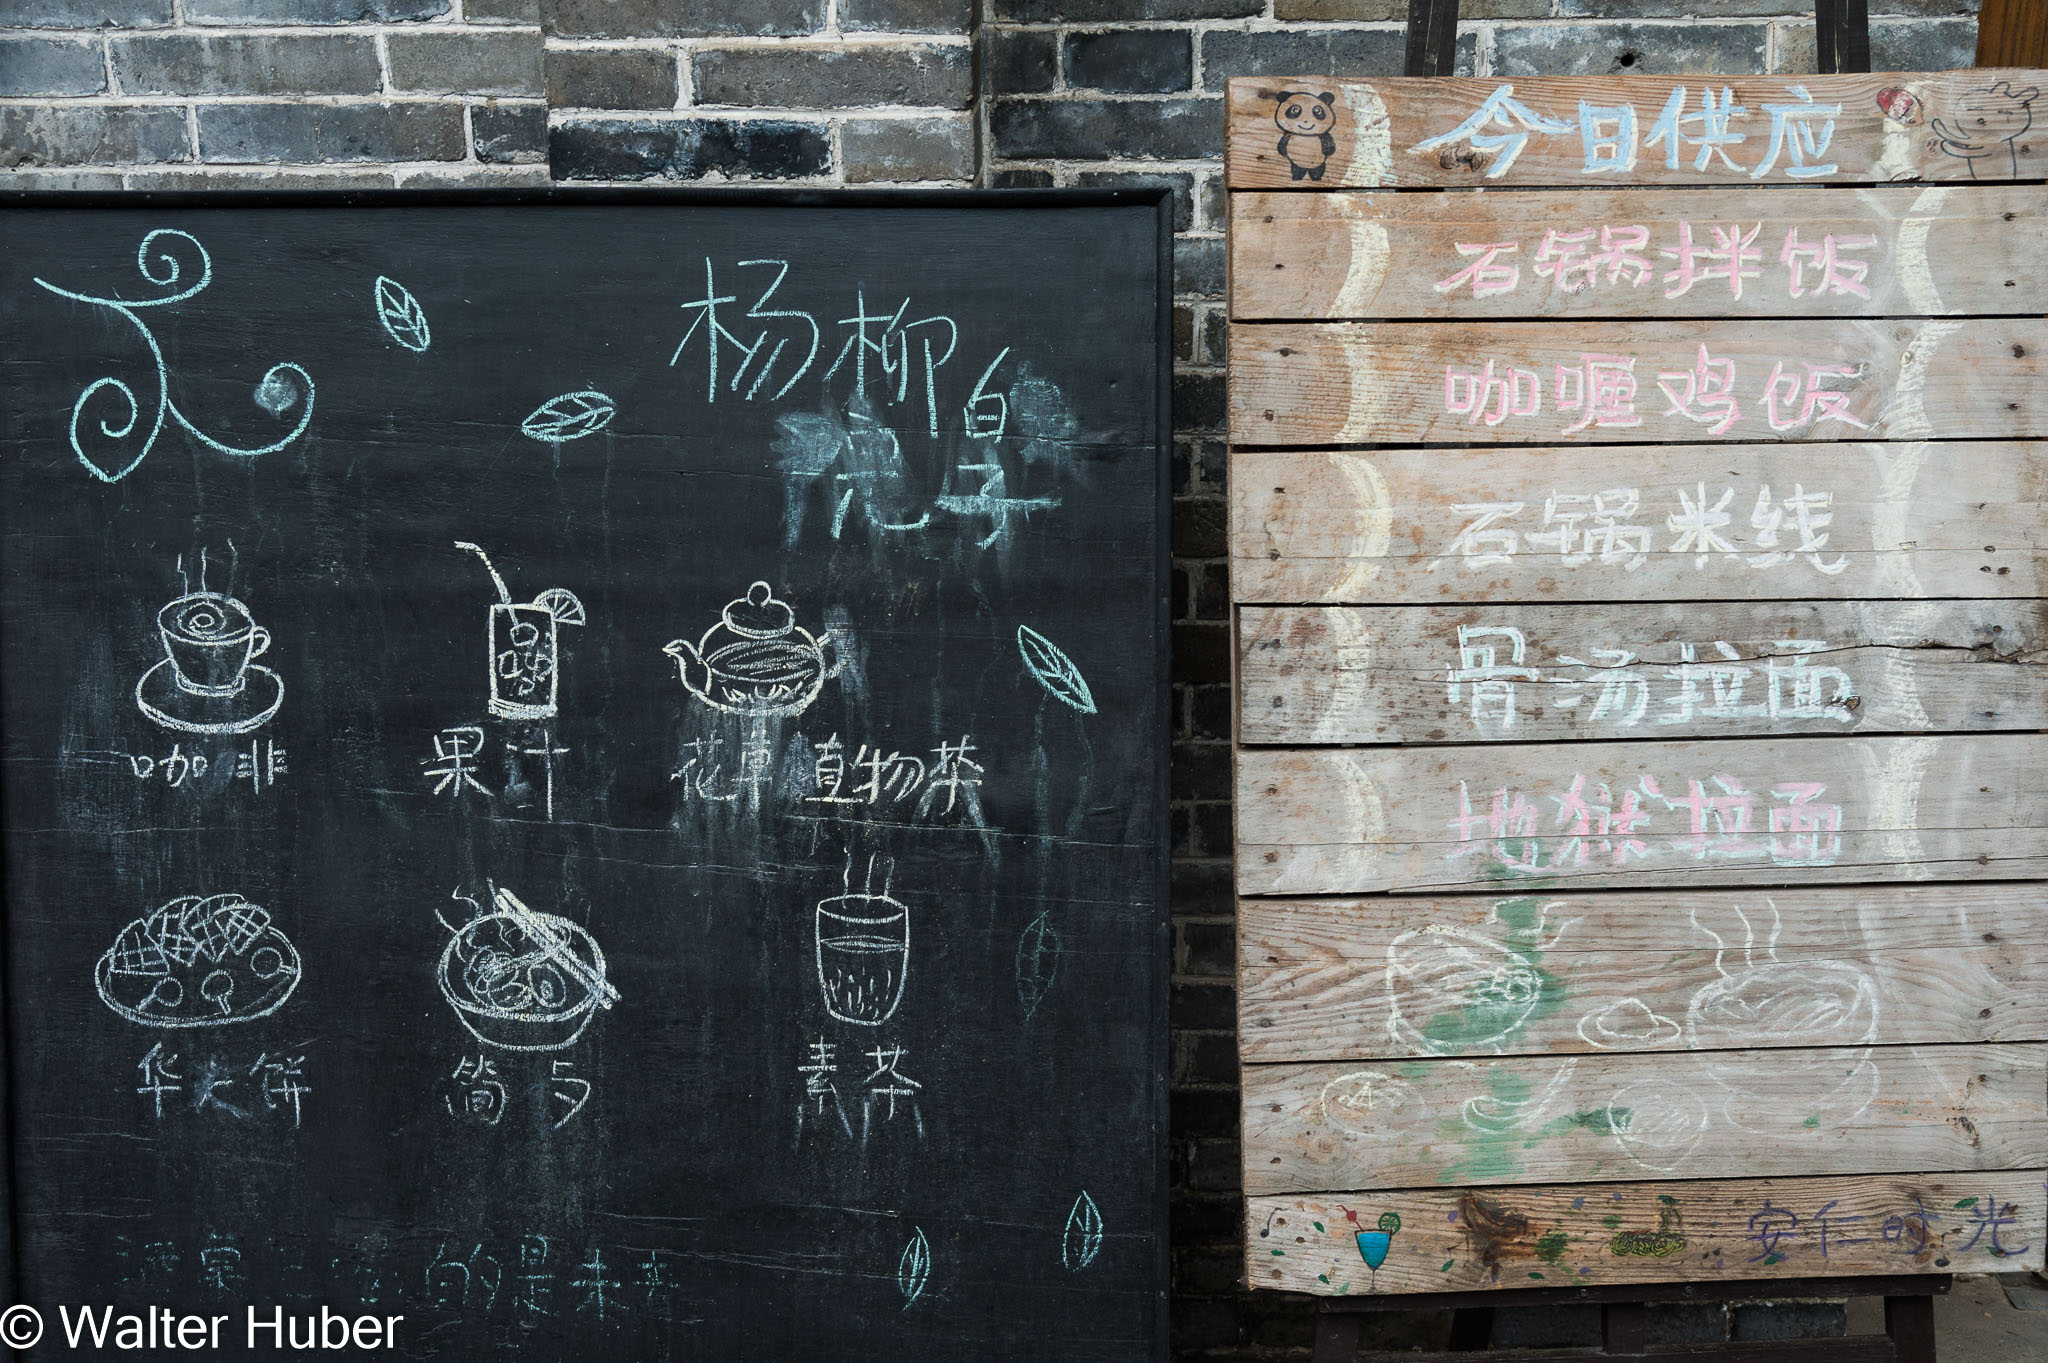 杨柳
咖啡
果汁
花草植物茶
华夫饼
简
素茶
的是未来
今日供应
石锅拌饭
咖喱鸡饭
石锅米线
骨汤拉面
地狱拉面
安仁时光
© Walter Huber